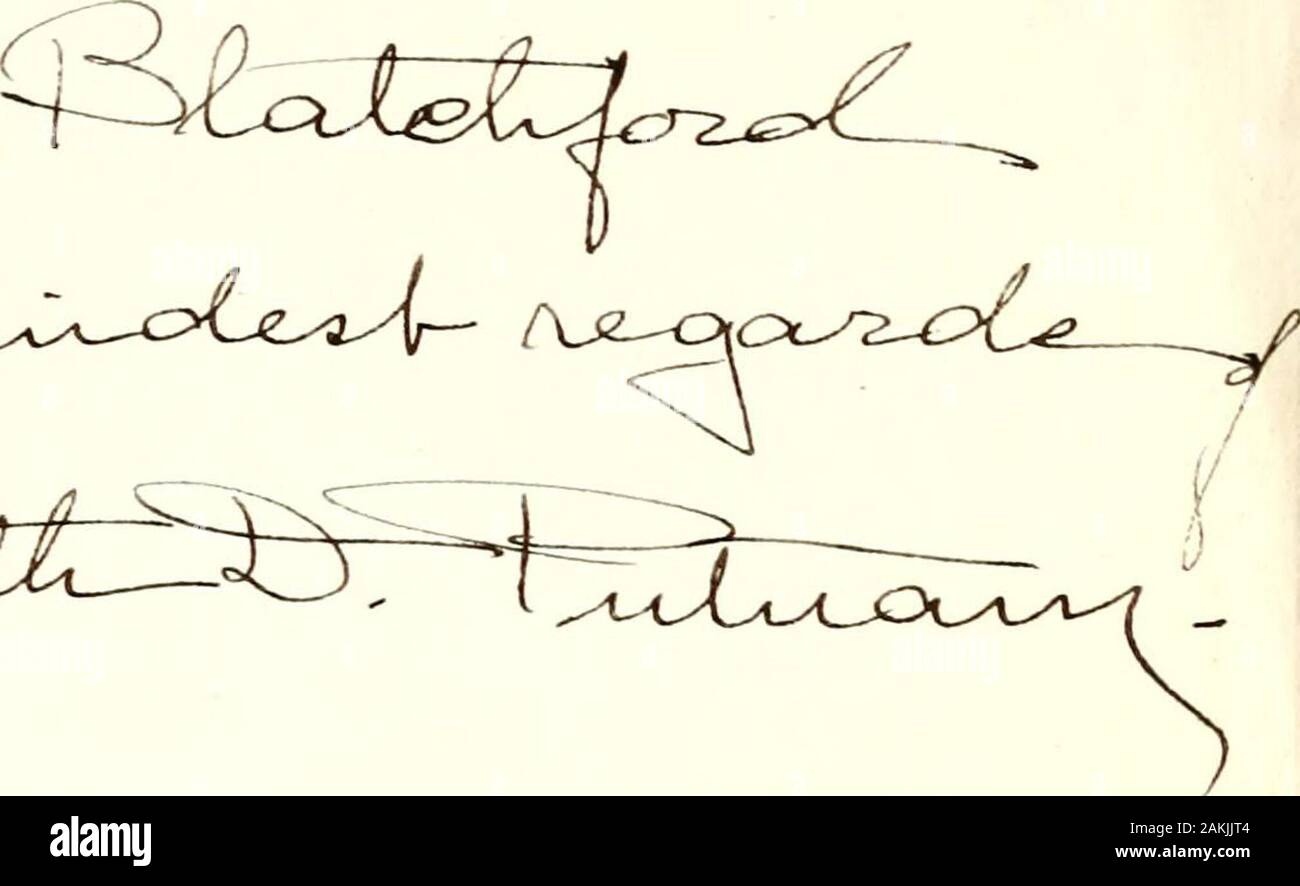 Blatchford
indest regards of
th D. Putnam -
alamy
Image ID: 2AKJJT4
www.alamy.com